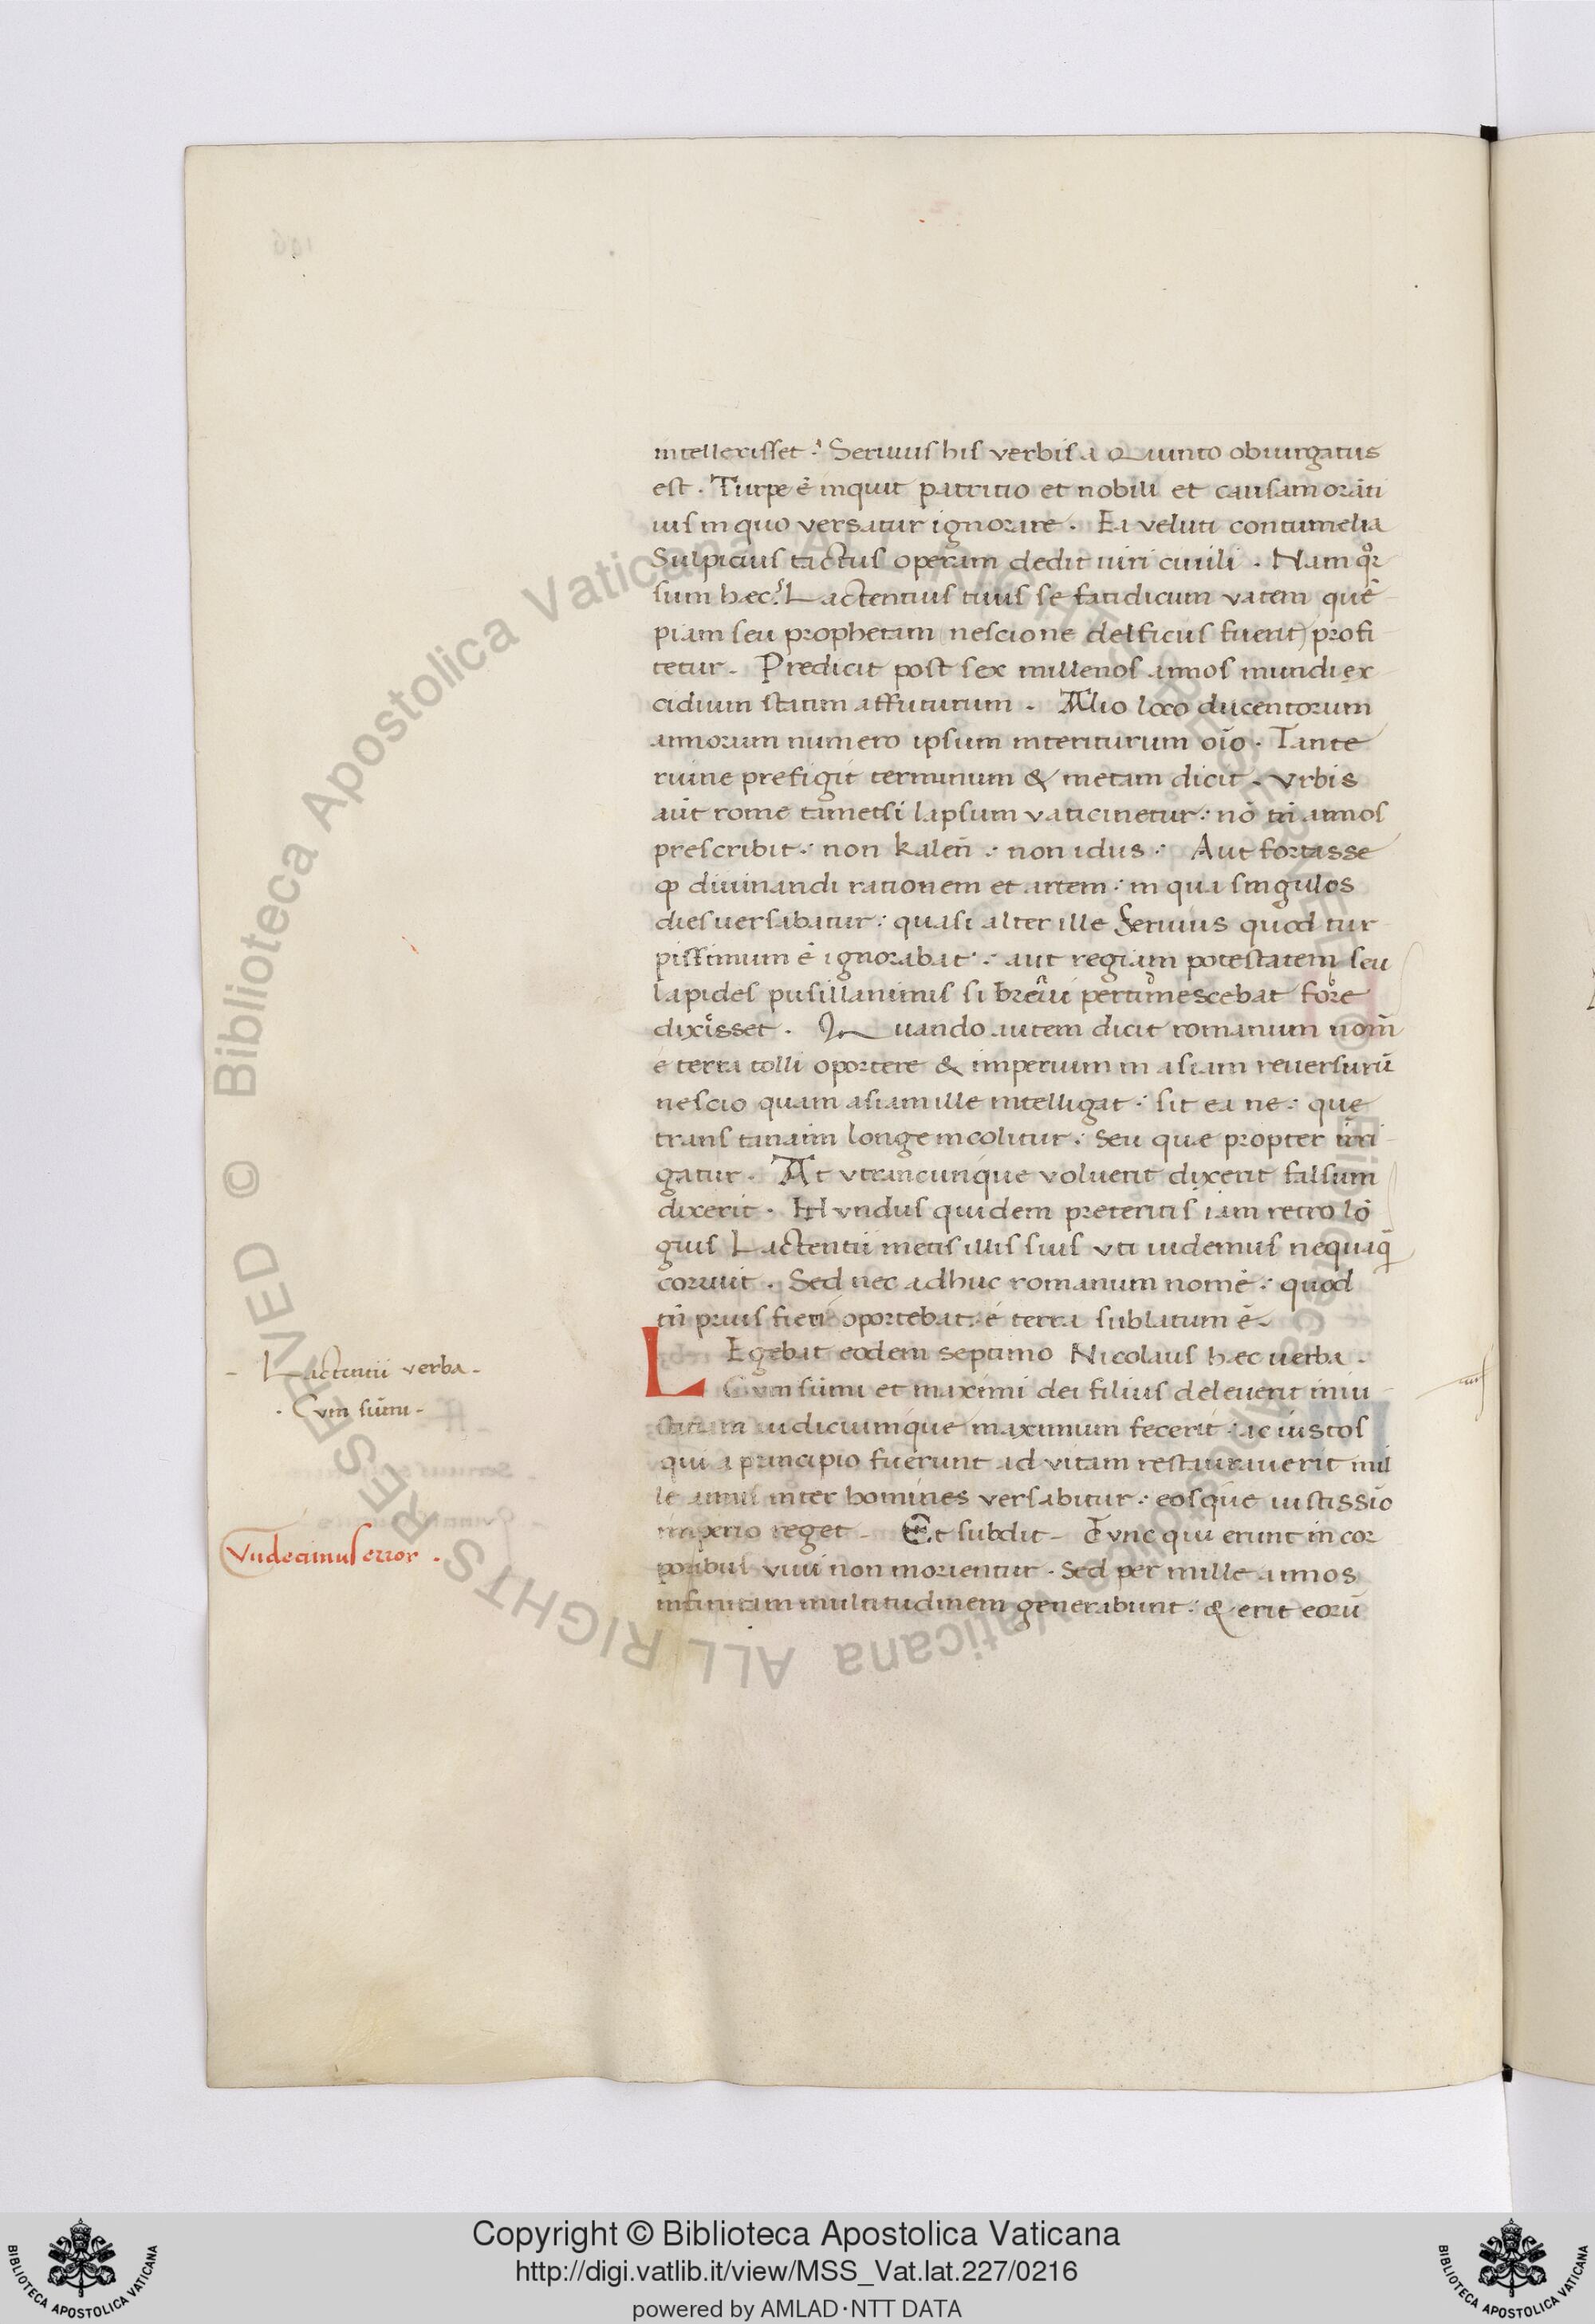 intellexisset : Seruius his verbis a Quinto obiurgatus
est . Turpe ē inquit patritio et nobili et causam orāti
ius in quo versatur ignorare . Ea veluti contumelia
Sulpicius tactus operam dedit iuri ciuili . Nam
sum hec? Lactentius tuus se fatidicum vatem quē
piam seu prophetam (nescio ne delficus fuerit) profi
tetur . Predicit post sex millenos annos mundi ex
cidium statim affuturum . Alio loco ducentorum
annorum numero ipsum interiturum oīo . Tante
ruine prefigit terminum & metam dicit . vrbis
aūt rome tametsi lapsum vaticinetur : nō tn̄ annos
prescribit : non kaleñ : non idus : Aut fortasse
diuinandi rationem et artem : in qua singulos
dies uersabatur : quasi alter ille Seruius quod tur
pissimum ē ignorabat : aut regiam potestatem seu
lapides pusillanimis si breui pertimescebat fore
dixisset . Quando autem dicit romanum nom̄
e terra tolli oportere & imperium in asiam reuersurū
nescio quam asiam ille intelligat : sit ea ne : que
trans tanaim longe incolitur : seu que propter irri
gatur . At vtrancunque voluerit dixerit falsum
dixerit . Mundus quidem preteritis iam retro lō
gius Lactentii metis illis suis vti uidemus nequaq̄
corruit . Sed nec adhuc romanum nomē : quod
tn̄ prius fieri oportebat : e terra sublatum ē .
LEgebat eodem septimo Nicolaus hec uerba .
Cum sūmi et maximi dei filius deleuerit iniu
stitiam iudiciumque maximum fecerit : ac iustos
qui a principio fuerunt ad vitam restaurauerit mil
le annis inter homines versabitur : eosque iustissīo
imperio reget . Et subdit . Tunc qui erunt in cor
poribus viui non morientur . Sed per mille annos
infinitam multitudinem generabunt : & erit eorū
- Lactantii verba -
. Cum sūmi -
Vndecimus error .
Copyright © Biblioteca Apostolica Vaticana
http://digi.vatlib.it/view/MSS_Vat.lat.227/0216
powered by AMLAD·NTT DATA